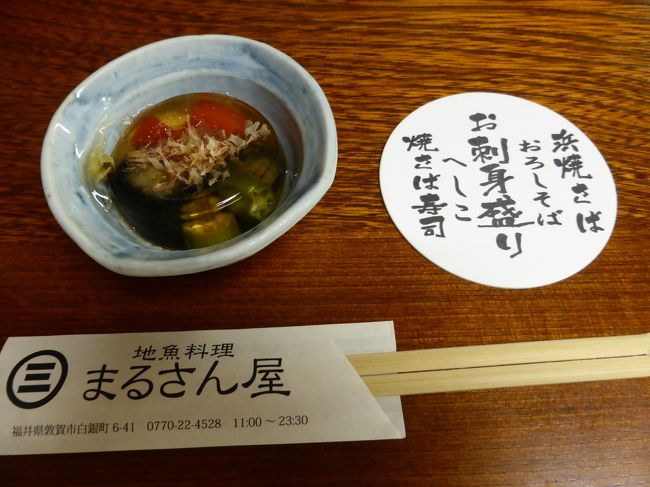 浜焼きさば
おろしそば
お刺身盛り
へしこ
焼さば寿司
三
地魚料理
まるさん屋
福井県敦賀市白銀町 6-41 0770-22-4528 11:00～23:30